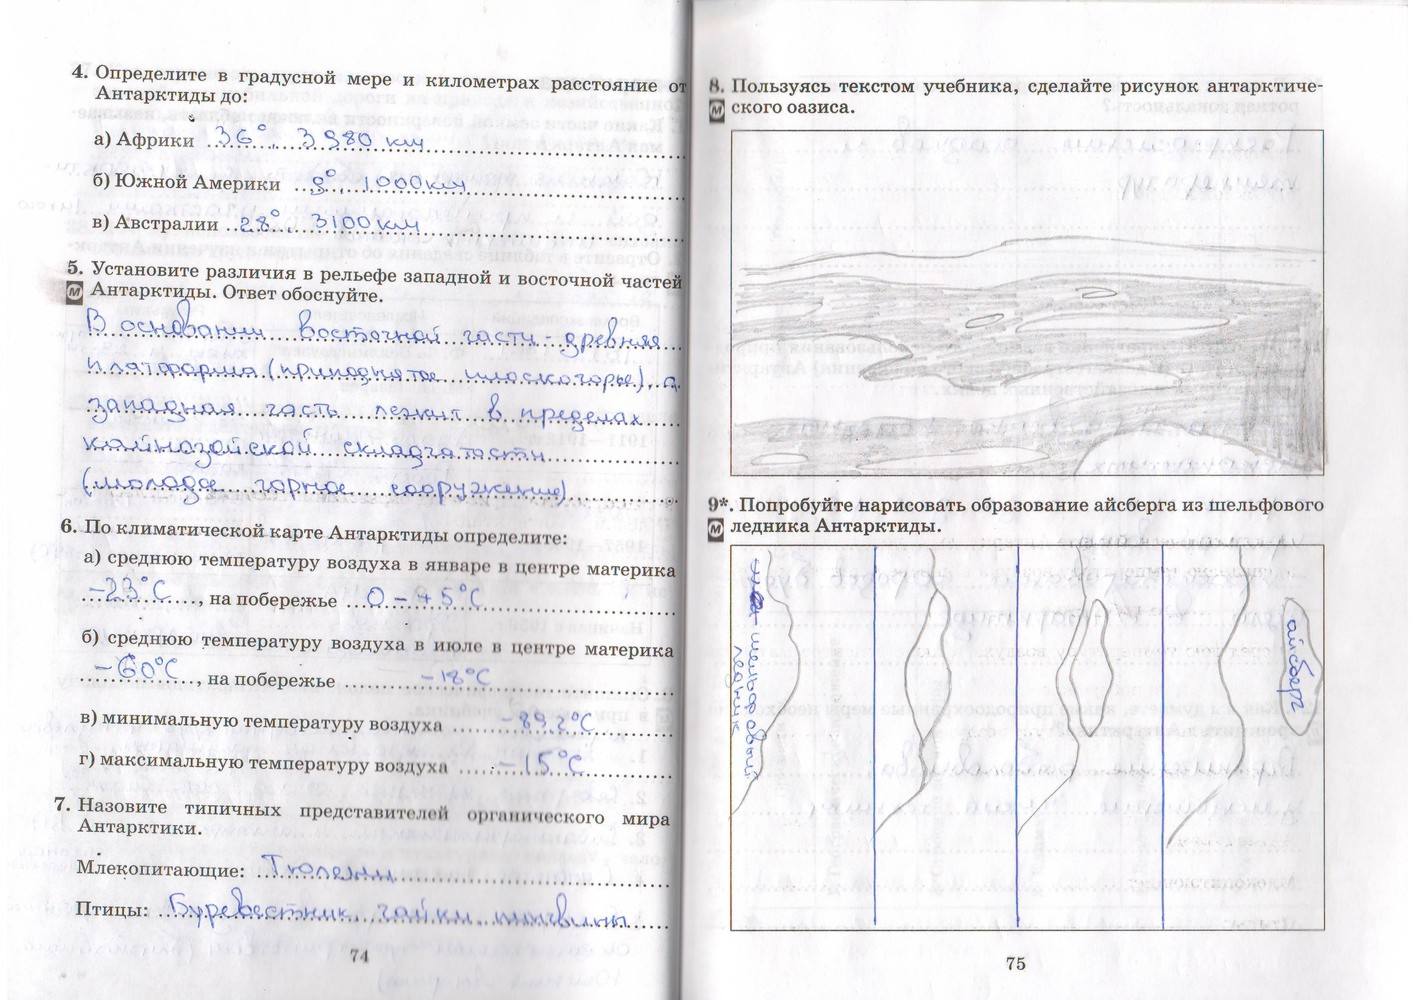 4. Определите в градусной мере и километрах расстояние от
Антарктиды до:
а) Африки 36°, 3980 км
б) Южной Америки 9°, 1000 км
в) Австралии 28°, 3100 км
5. Установите различия в рельефе западной и восточной частей
М Антарктиды. Ответ обоснуйте.
В основании восточной части - древняя
платформа (приподнятое плоскогорье), а
западная часть лежит в пределах
кайнозойской складчатости
(молодое горное сооружение)
6. По климатической карте Антарктиды определите:
а) среднюю температуру воздуха в январе в центре материка
-23°С, на побережье 0-
б) среднюю температуру воздуха в июле в центре материка
-60°С, на побережье -18°С
в) минимальную температуру воздуха
г) максимальную температуру воздуха -15°С
7. Назовите типичных представителей органического мира
Антарктики.
Млекопитающие: Тюлени
Птицы: Буревестник, чайки, пингвины
74
8. Пользуясь текстом учебника, сделайте рисунок антарктиче-
М ского оазиса.
9*. Попробуйте нарисовать образование айсберга из шельфового
М ледника Антарктиды.
шельфовый
ледник
айсберг
75